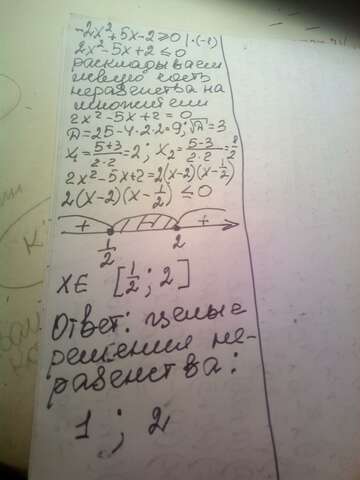 -2x²+5x-2≥0 |·(-1)
2x²-5x+2≤0
раскладываем
левую часть
неравенства на
множители
2x²-5x+2=0
Д=25-4·2·2=9; √Д=3
x₁=(5+3)/(2·2)=2; x₂=(5-3)/(2·2)=1/2
2x²-5x+2=2(x-2)(x-1/2)
2(x-2)(x-1/2)≤0
+ - +
1/2 2
x∈ [1/2; 2]
Ответ: целые
решения не-
равенства:
1 ; 2